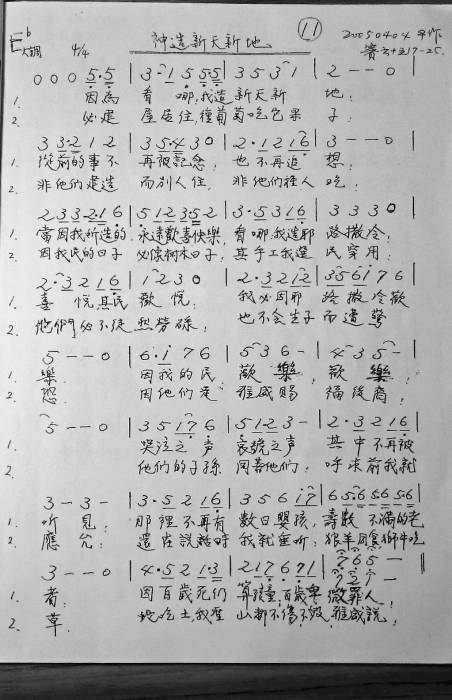 E♭大調 4/4 神造新天新地 11 20050404
賽六十五17-25.
0 0 0 5·5 | 3·1 5 5·5 | 3 5 3 1 | 2 - - 0
1. 因為 看 哪,我造 新天新 地:
2. 必建 屋居住,種葡萄吃它果 子:
3 3·2 1 2 | 3 5·4 3 0 | 2·1 2 1 6 | 3 - - 0
1. 從前的事不 再被記念, 也不再追 想:
2. 非他們建造 而別人住, 非他們種人 吃:
2 3 3 2 1 6 | 5 1 2 3·5 2 | 3·5 3 1 6 | 3 3 3 0
1. 當因我所造的 永遠歡喜快樂, 看哪,我造耶 路撒冷:
2. 因我民的日子 必像樹木日子: 其手工我選 民享用:
2·3 2 1 6 | 1 2 3 0 | 2·3 2 1 2 | 3 5 6 1 7 6
1. 喜悅其民 歡悅: 我必因耶 路撒冷歡
2. 他們必不徒 然勞碌: 也不會生子 而遭驚
5 - - 0 | 6·1 7 6 | 5 3 6 - | 4 3 5 -
1. 樂 因我的民 歡樂, 歡樂:
2. 恐 因他們是 雅威賜 福後裔:
5 - - 0 | 3 5 1 7 6 | 5 1 2 3 - | 2·3 2 1 6
1. 哭泣之声 哀號之声 其中不再被
2. 他們的子孫 同著他們: 呼求前我就
3 - 3 - | 3·5 2 1 6 | 3 5 6 1 7 | 6 5·6 5 6 5 6
1. 听見: 那裡不再有 數日嬰孩, 壽數不滿的老
2. 應允: 還在說話時 我就垂听: 狼羊同食獅牛吃
3 - - 0 | 4·5 2 1 3 | 2 1 7 6 7 1 | 7 6 5 -
7 2 1 -
1. 者: 因百歲死們 算孩童,百歲卑 微罪人:
2. 草: 蛇吃土,我聖 山都不傷不毀 雅威說: